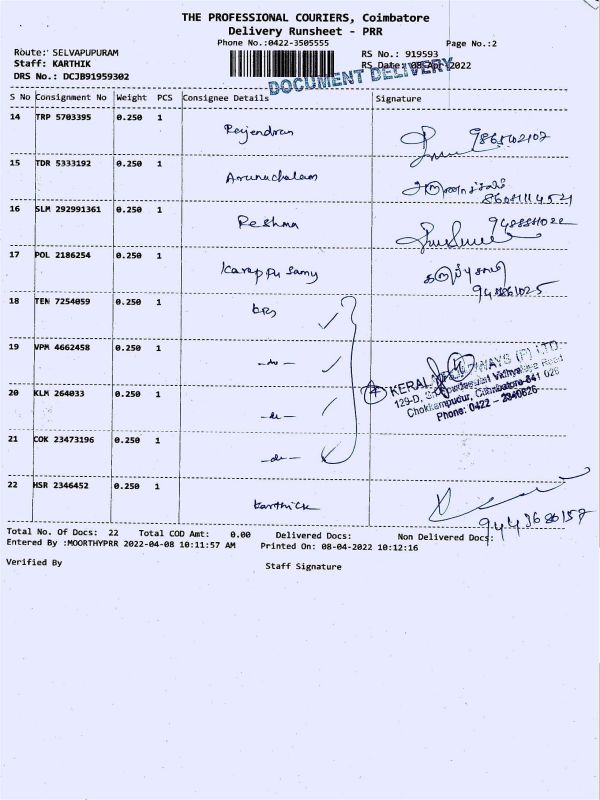 THE PROFESSIONAL COURIERS, Coimbatore
Delivery Runsheet - PRR
Phone No.:0422-3505555
Page No.:2
Route: SELVAPUPURAM
RS No.: 919593
Staff: KARTHIK
RS Date: 08-Apr-2022
DRS No.: DCJB91959302
DOCUMENT DELIVERY
S No Consignment No Weight PCS Consignee Details Signature
14 TRP 5703395 0.250 1 Rajendran
15 TDR 5333192 0.250 1 Arunachalam அருணாச்சலம்
16 SLM 292991361 0.250 1 Reshma
17 POL 2186254 0.250 1 Karuppusamy கருப்புசாமி
18 TEN 7254059 0.250 1
19 VPM 4662458 0.250 1 -do-
20 KLM 264033 0.250 1 -do-
21 COK 23473196 0.250 1 -do-
22 HSR 2346452 0.250 1 Karthick
KERAL WAYS (P) LTD.
129-D, Vidhyalaya Road
Chokkampudur, Coimbatore-641 026
Phone: 0422 - 2340626
Total No. Of Docs: 22 Total COD Amt: 0.00 Delivered Docs: Non Delivered Docs:
Entered By :MOORTHYPRR 2022-04-08 10:11:57 AM Printed On: 08-04-2022 10:12:16
Verified By Staff Signature